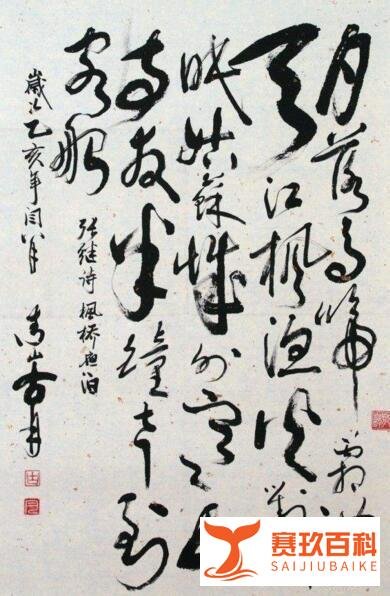 月落乌啼霜
天江楓渔火對
眠姑蘇城外寒
寺夜半鐘声到
客船
张继诗楓桥夜泊
歲次乙亥年闰八月
赛玖百科
SAIJIUBAIKE